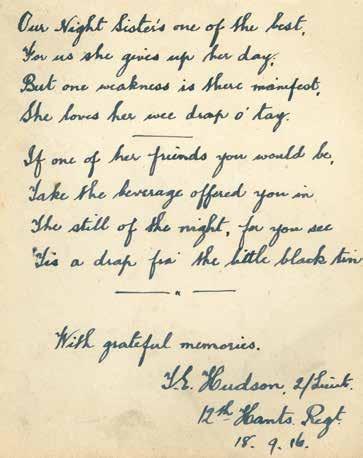 Our Night Sister's one of the best,
For us she gives up her day,
But one weakness is there manifest,
She loves her wee drap o' tay.
If one of her friends you would be,
Take the beverage offered you in
The still of the night, for you see
'Tis a drap fra' the little black tin
With grateful memories.
T.E. Hudson, 2/Lieut.
12th Hants. Regt.
18. 9. 16.